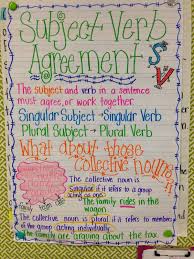 Subject Verb
Agreement
S V
The subject and verb in a sentence
must agree, or work together.
Singular Subject → Singular Verb
Plural Subject → Plural Verb
What about those
collective nouns?!
The collective noun is
singular if it refers to a group
acting as one.
The family rides in the
wagon.
The collective noun is plural if it refers to members
of the group acting individually.
The family are arguing about the